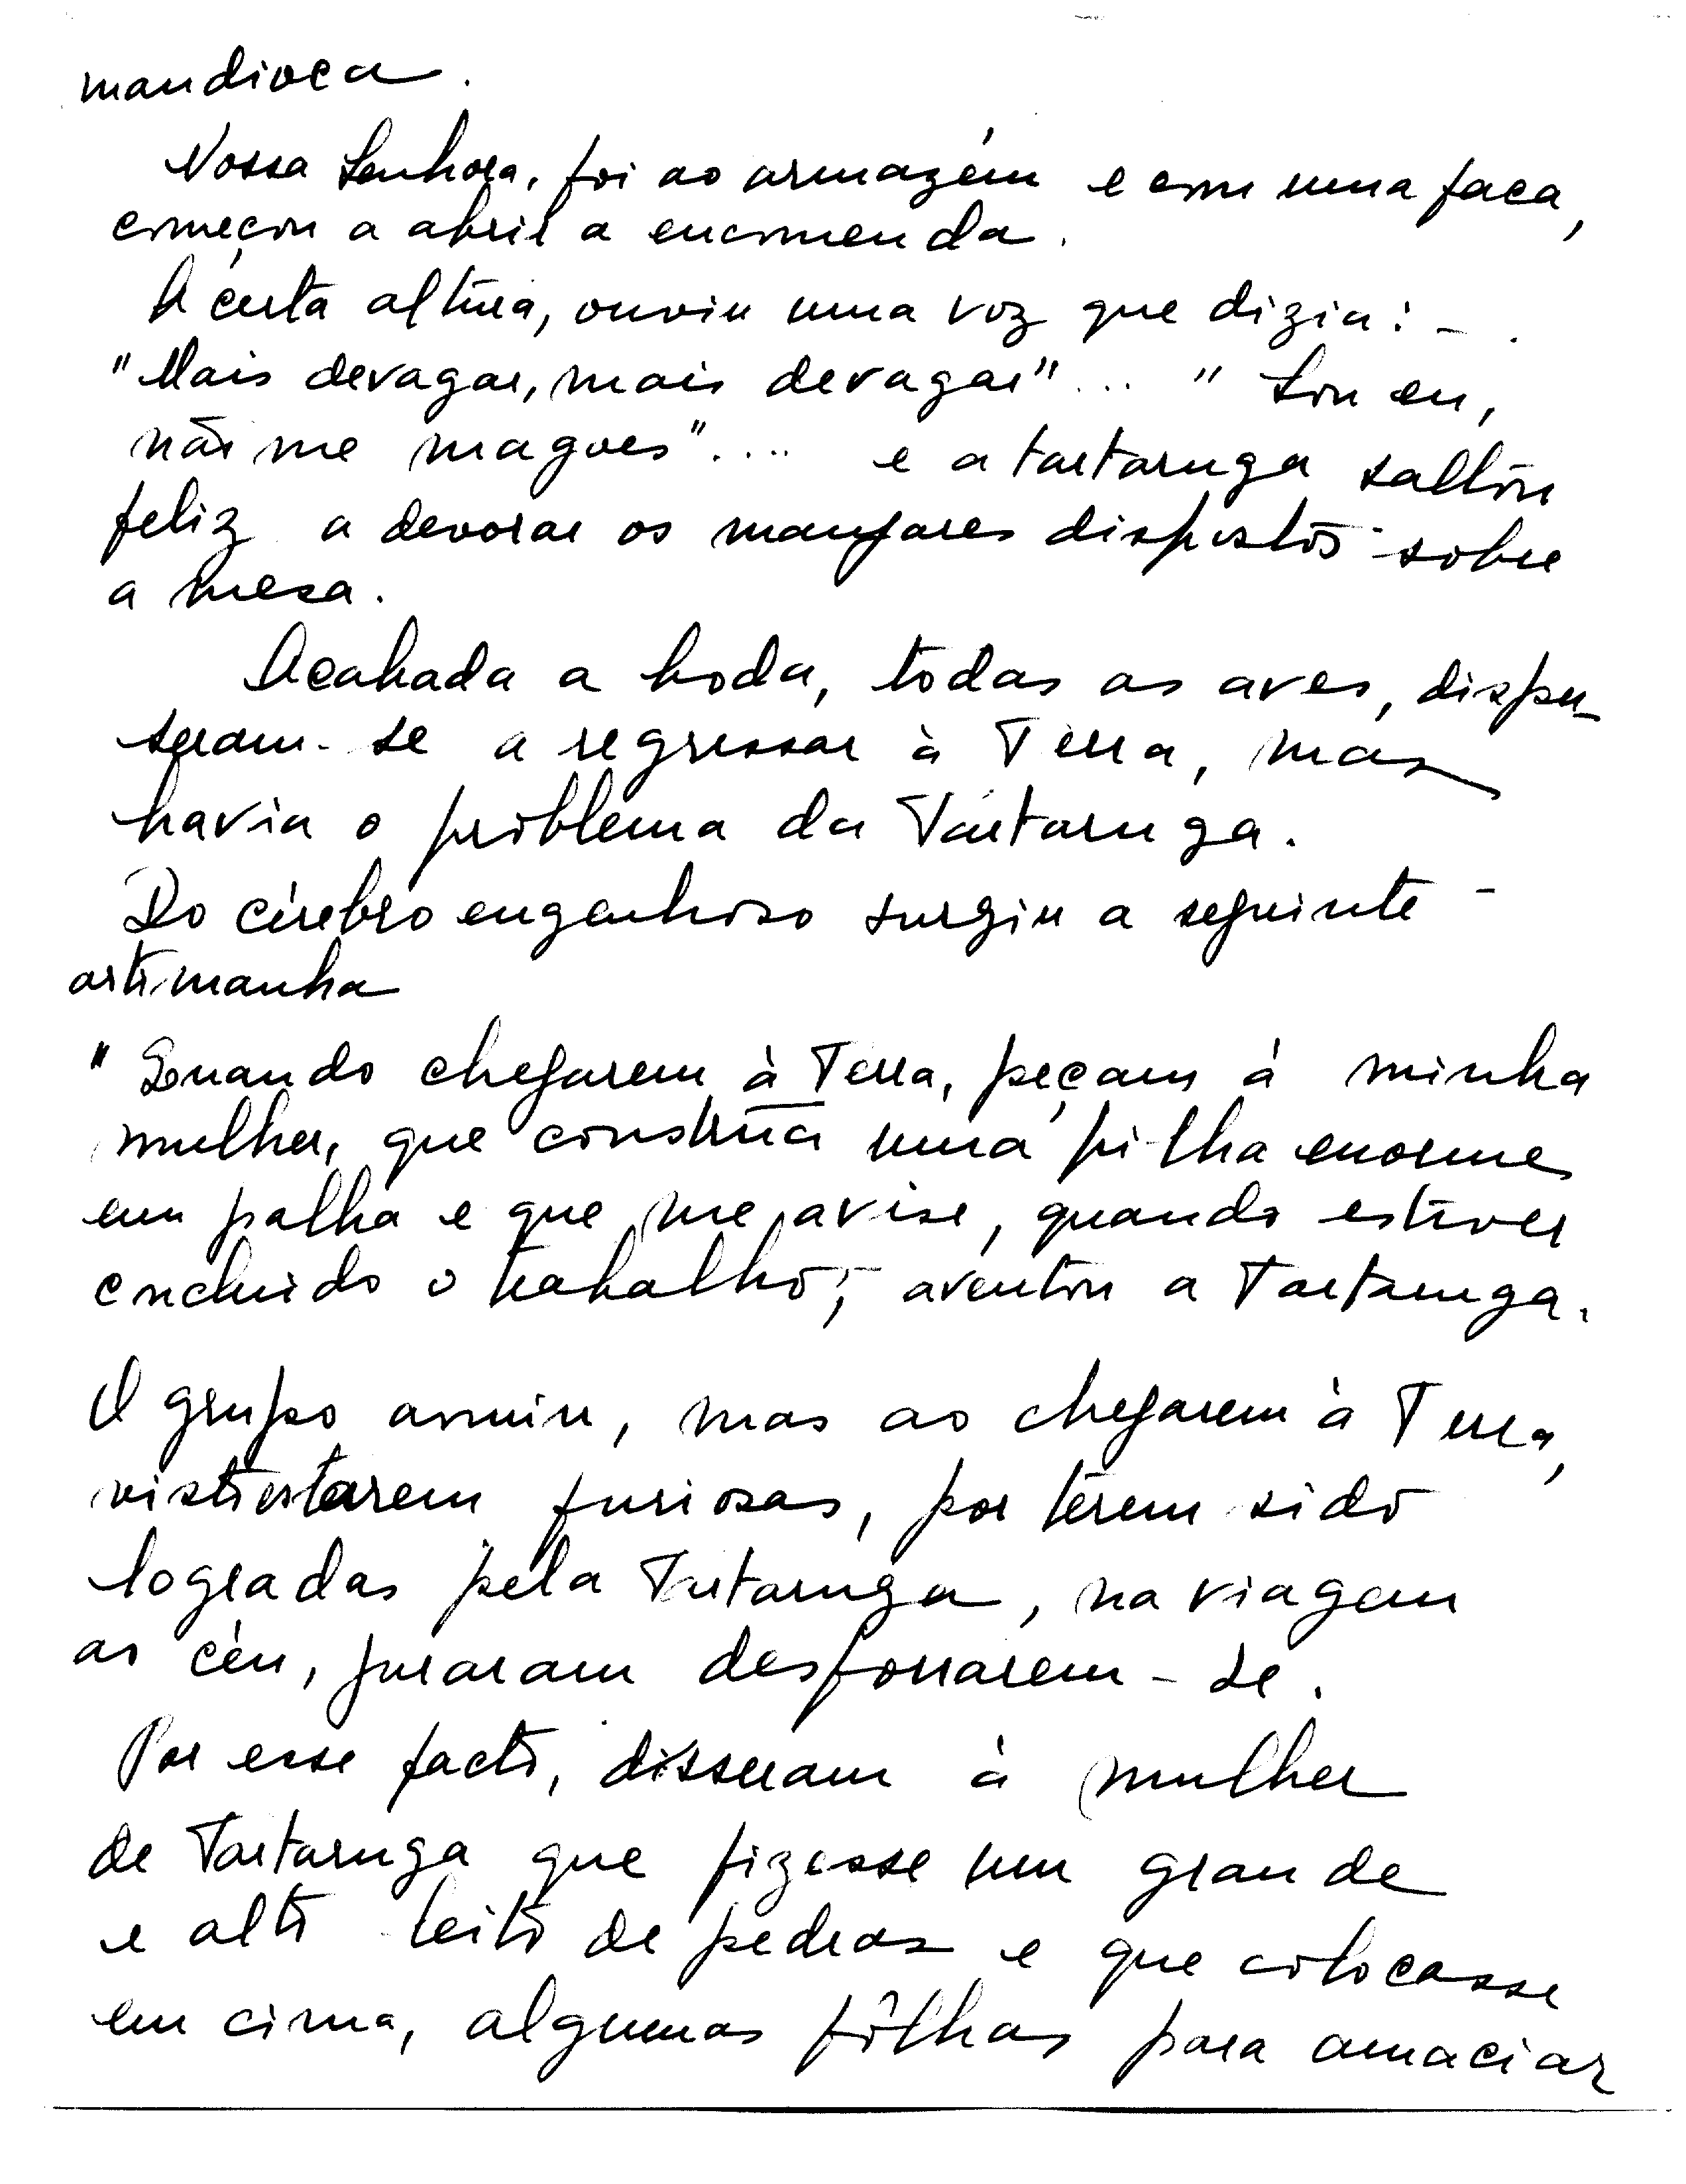 mandioca.
Nossa Senhora, foi ao armazém e com uma faca,
começou a abrir a encomenda.
A certa altura, ouviu uma voz que dizia: -
"Mais devagar, mais devagar"... "Sou eu,
não me magoes".... e a tartaruga saltou
feliz a devorar os manjares dispostos sobre
a mesa.
Acabada a boda, todas as aves, dispu-
seram-se a regressar à Terra, mas
havia o problema da Tartaruga.
Do cérebro engenhoso surgiu a seguinte -
artimanha
"Quando chegarem à Terra, peçam à minha
mulher, que construa uma pilha enorme
em palha e que me avise, quando estiver
concluido o trabalho; - aventou a Tartaruga.
O grupo anuiu, mas ao chegarem à Terra,
visto estarem furiosas, por terem sido
logradas pela Tartaruga, na viagem
ao céu, juraram desforrarem-se.
Por esse facto, disseram à mulher
de Tartaruga que fizesse um grande
e alto leito de pedras e que colocasse
em cima, algumas fôlhas para amaciar